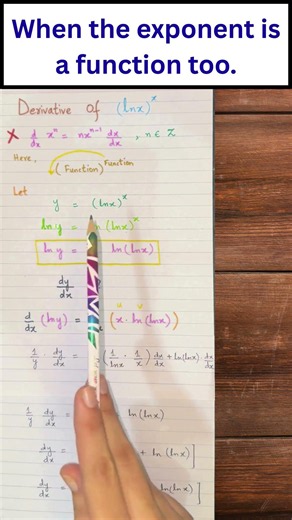 When the exponent is
a function too.
Derivative Of (lnx)^x
✗ d/dx x^n = nx^(n-1) dx/dx , n ∈ Z
Here, (Function)^Function
Let
y = (lnx)^x
ln y = (lnx)^x
ln y = ln(lnx)
dy/dx
d/dx (ln y) = (x · ln(lnx))
1/y · dy/dx = (1/lnx · 1/x) dx/dx + ln(lnx) · dx/dx
1/y dy/dx = ln(lnx)
dy/dx = + ln(lnx)]
dy/dx = ln(lnx)]